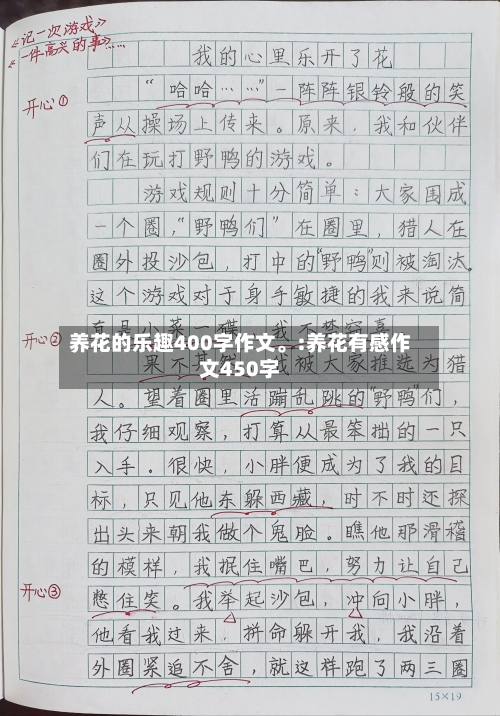 《记一次游戏》
《一件高兴的事》……
我的心里乐开了花
开心①
“哈哈……”一阵阵银铃般的笑
声从操场上传来。原来，我和伙伴
们在玩打野鸭的游戏。
游戏规则十分简单：大家围成
一个圈，“野鸭们”在圈里，猎人在
圈外投沙包，打中的“野鸭”则被淘汰。
这个游戏对于身手敏捷的我来说简
开心②
养花的乐趣400字作文。:养花有感作
文450字
我被大家推选为猎
人。望着圈里活蹦乱跳的“野鸭”们，
我仔细观察，打算从最笨拙的一只
入手。很快，小胖便成为了我的目
标，只见他东躲西藏，时不时还探
出头来朝我做个鬼脸。瞧他那滑稽
的模样，我抿住嘴巴，努力让自己
开心③
憋住笑。我举起沙包，冲向小胖，
他看我过来，拼命躲开我，我沿着
外圈紧追不舍，就这样跑了两三圈
15×19